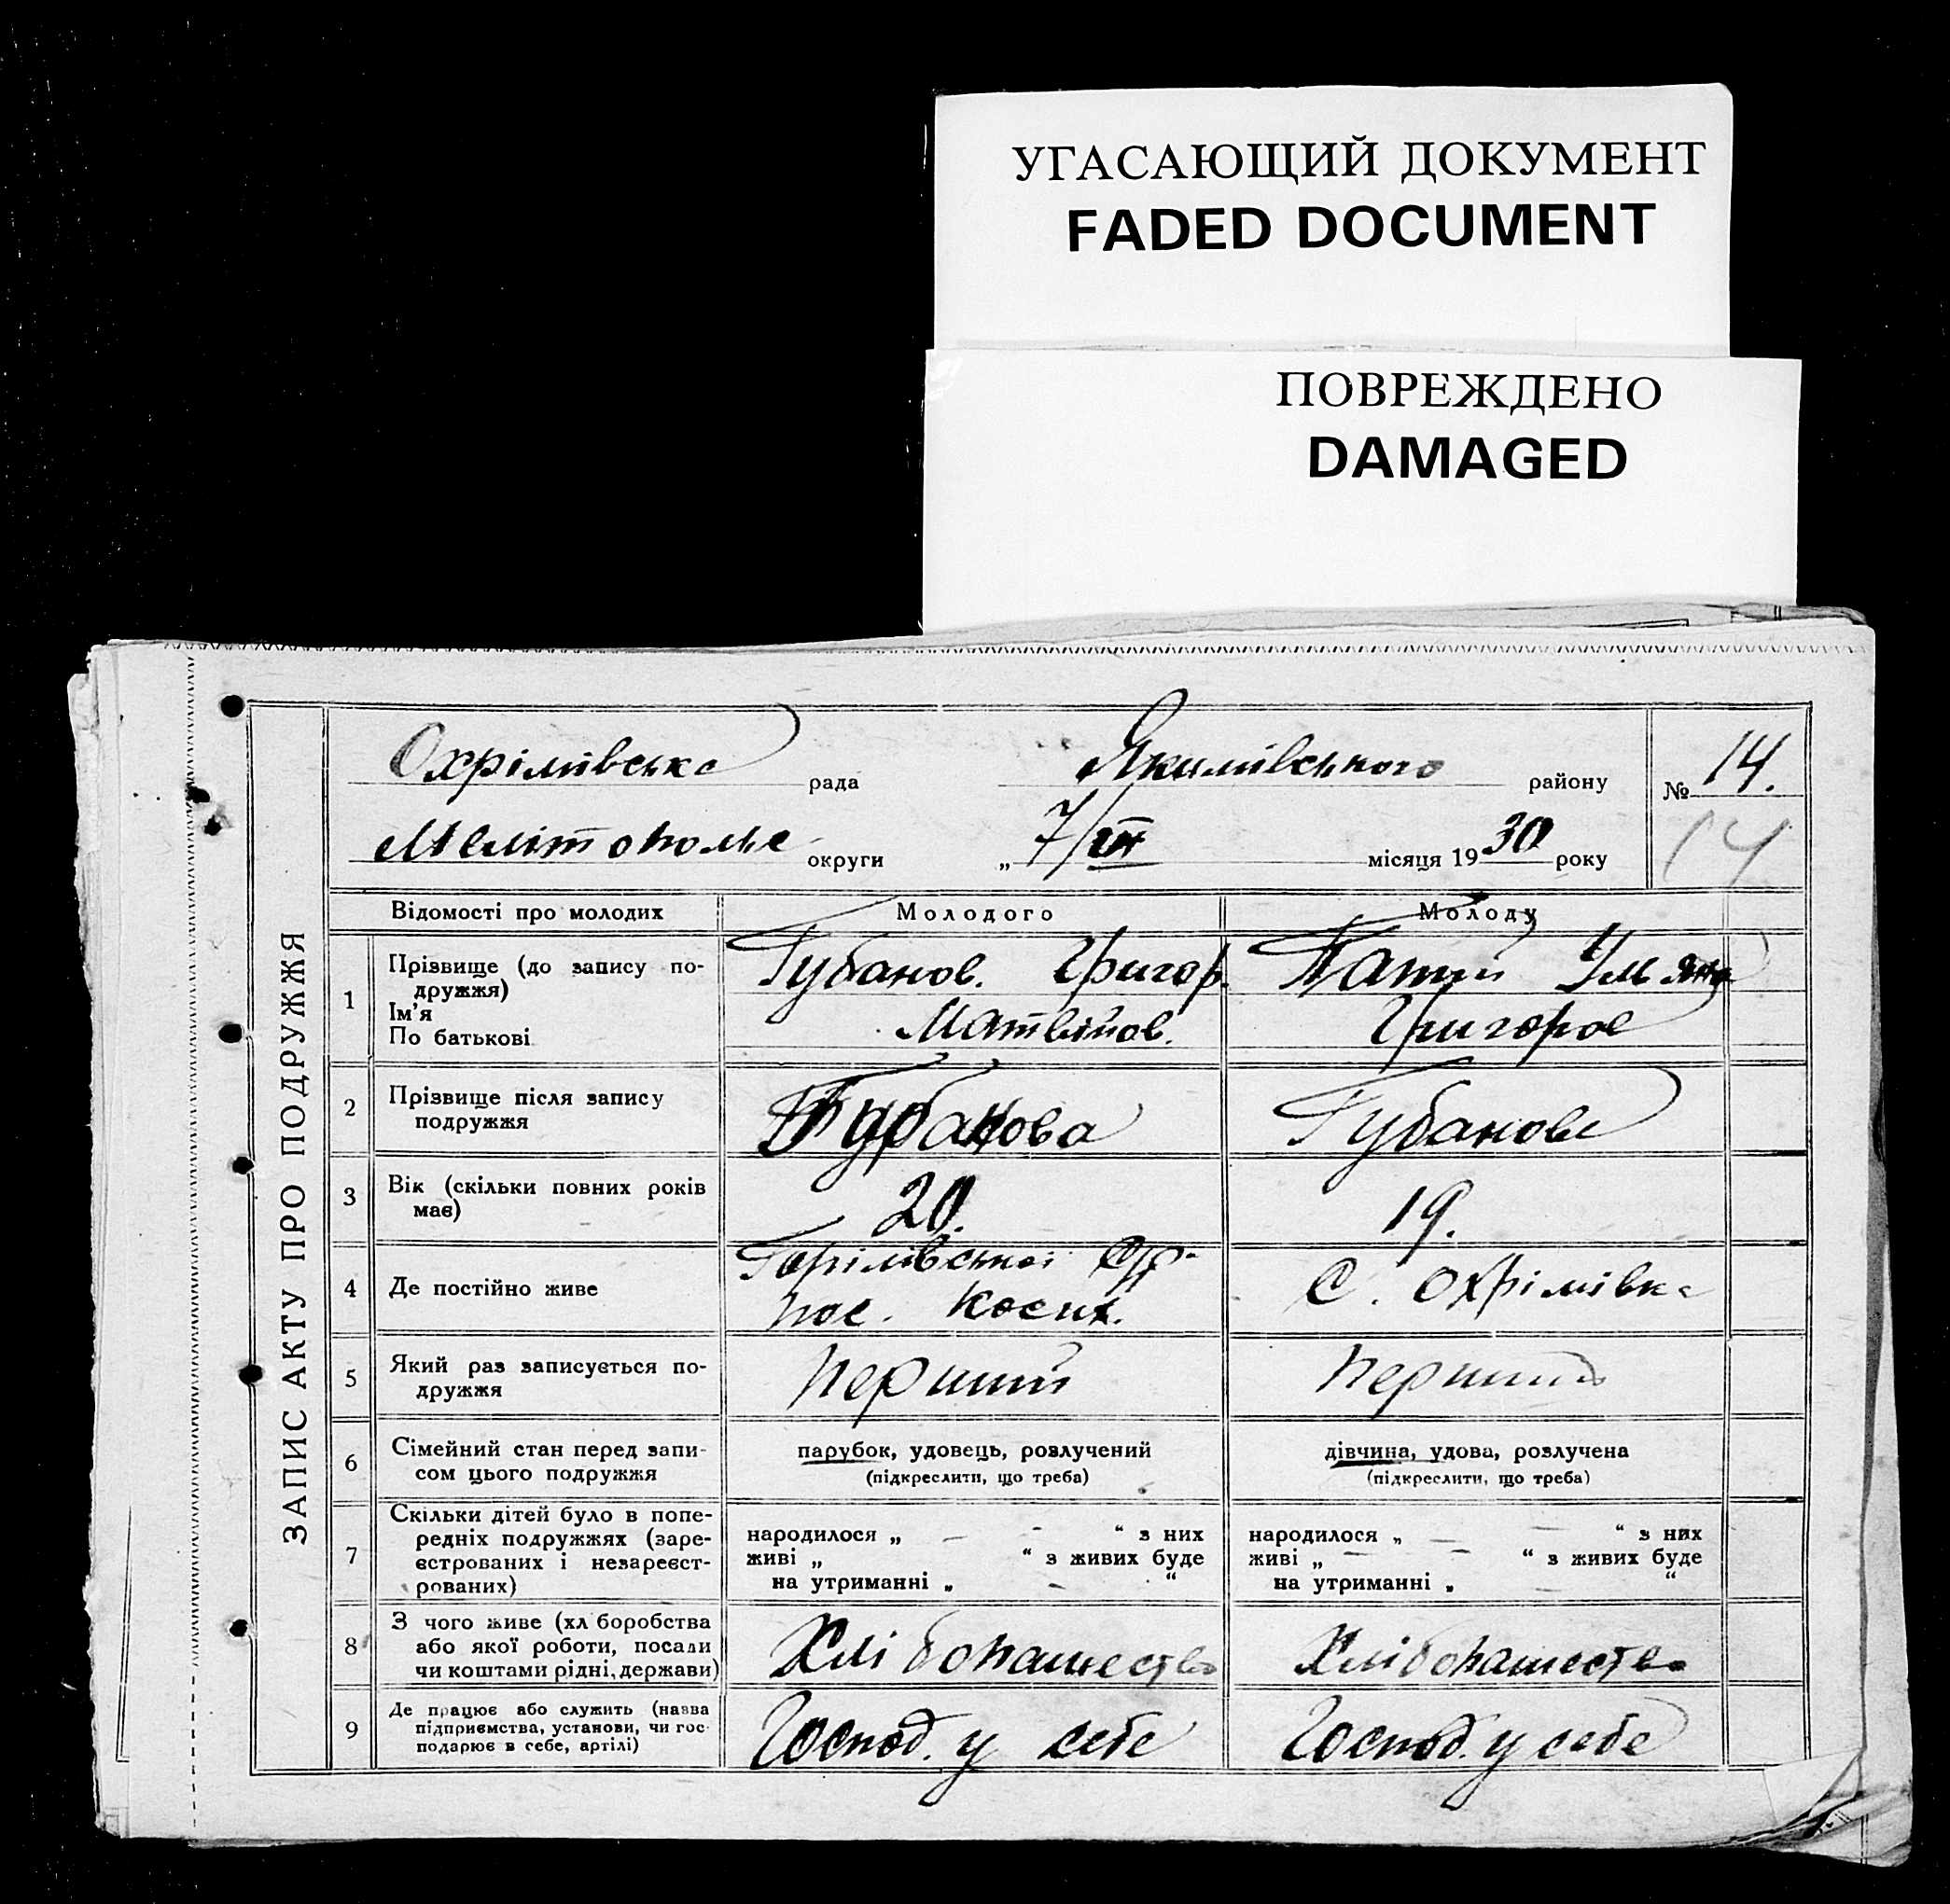 УГАСАЮЩИЙ ДОКУМЕНТ
FADED DOCUMENT
ПОВРЕЖДЕНО
DAMAGED
ЗАПИС АКТУ ПРО ПОДРУЖЖЯ
Охрімівська рада Якимівського району № 14.
Мелітополье округи „ 7/VII місяця 1930 року 14
Відомості про молодих Молодого Молоду
1 Прізвище (до запису подружжя) Губанов. Григор. Патий Ульяна
Ім'я
По батькові Матвійов. Григоров
2 Прізвище після запису подружжя Губанова Губанова
3 Вік (скільки повних років має) 20. 19.
4 Де постійно живе С. Охрімівка
5 Який раз записується подружжя перший перший
6 Сімейний стан перед записом цього подружжя парубок, удовець, розлучений дівчина, удова, розлучена
(підкреслити, що треба) (підкреслити, що треба)
7 Скільки дітей було в попередніх подружжях (зареєстрованих і незареєстрованих)
народилося „ — - “ з них народилося „ — — “ з них
живі „ “ з живих буде живі „ — — “ з живих буде
на утриманні „ - “ на утриманні „ — “
8 З чого живе (хліборобства або якої роботи, посади чи коштами рідні, держави) Хлібопашество Хлібопашество
9 Де працює або служить (назва підприємства, установи, чи господарює в себе, артілі) Господ. у себе Господ. у себе